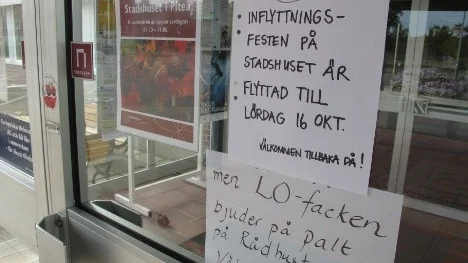 Stadshuset i Piteå
INFLYTTNINGS-
FESTEN PÅ
STADSHUSET ÄR
FLYTTAD TILL
LÖRDAG 16 OKT.
VÄLKOMMEN TILLBAKA DÅ!
men LO-facken
bjuder på palt
på Rådhust